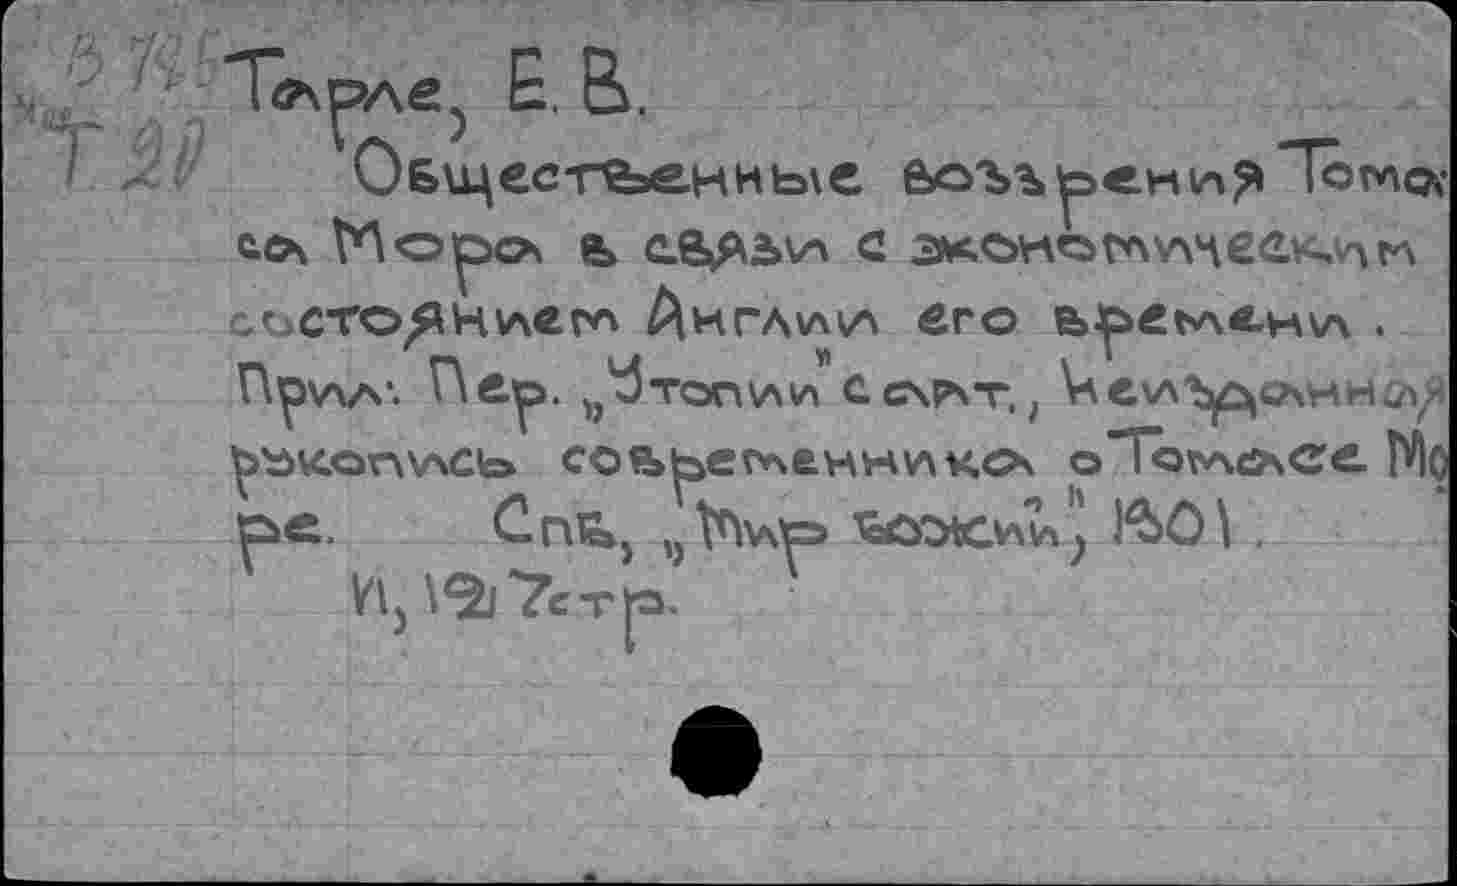 Тарле, Е. В.
Т 20
Общественные воззрения Тома-
са Мора в связи с экономическим
состоянием Англии его времени.
Прил: Пер. „Утопии" с лат., Неизданная
рукопись современника о Томасе Мо
ре. Спб, „Мир божий", 1901.
II, 127стр.